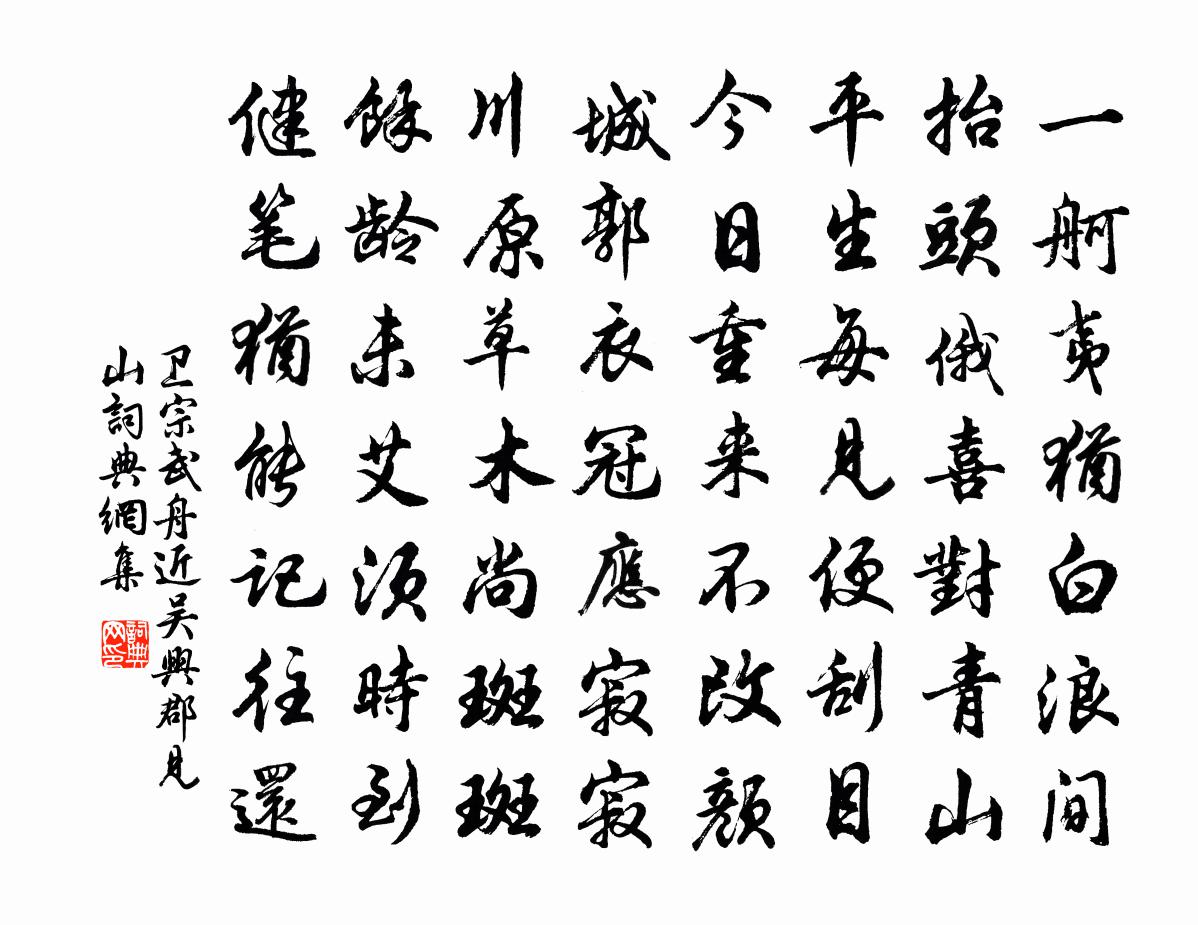 一舸夷猶白浪间
抬頭俄喜對青山
平生每見便刮目
今日重来不改颜
城郭衣冠應寂寂
川原草木尚斑斑
餘龄未艾须時到
健笔猶能记往還
卫宗武舟近吴興郡見
山詞典網集
詞典网印